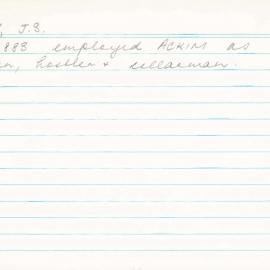 , J.S.
883 employed ACKIM as
, hostler + cellarman.